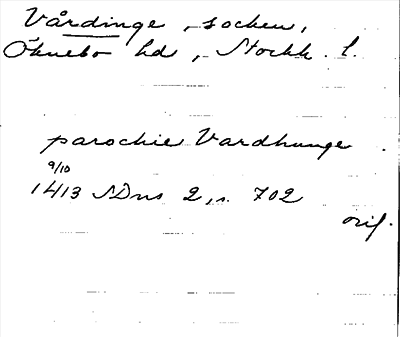 Vårdinge, socken,
Öknebo hd, Stockh. l.
parochie Vardhunge.
9/10
1413 SDns 2, s. 702
orig.